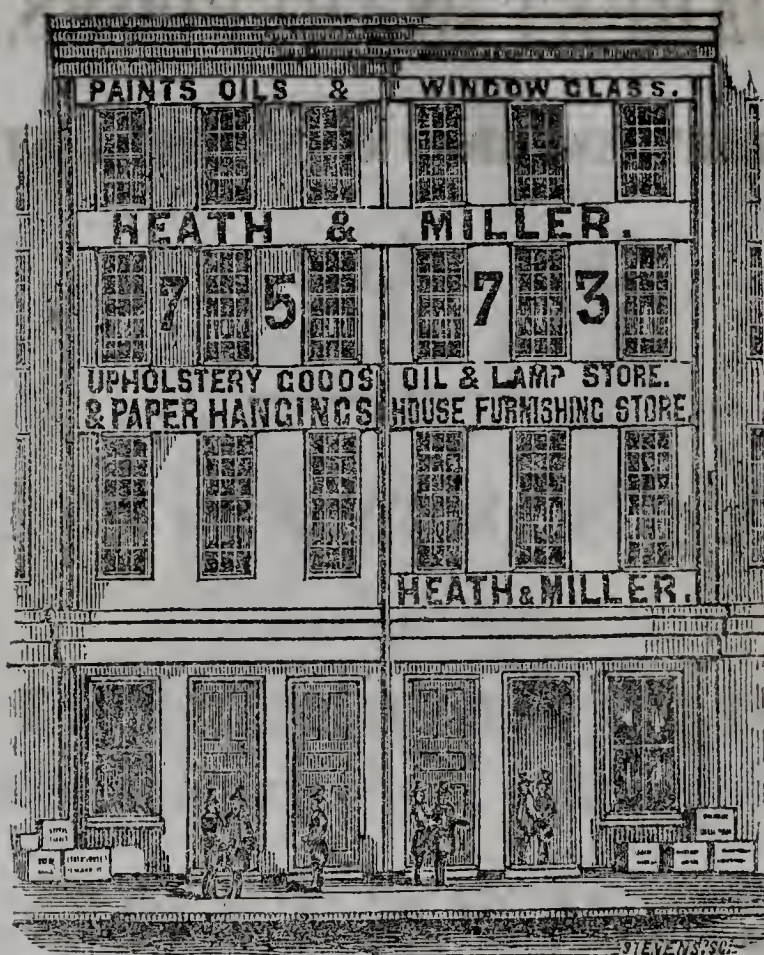 PAINTS OILS & WINDOW GLASS.
HEATH & MILLER.
75 73
UPHOLSTERY GOODS
& PAPER HANGINGS
OIL & LAMP STORE.
HOUSE FURNISHING STORE.
HEATH & MILLER.
STEVENS. SC.